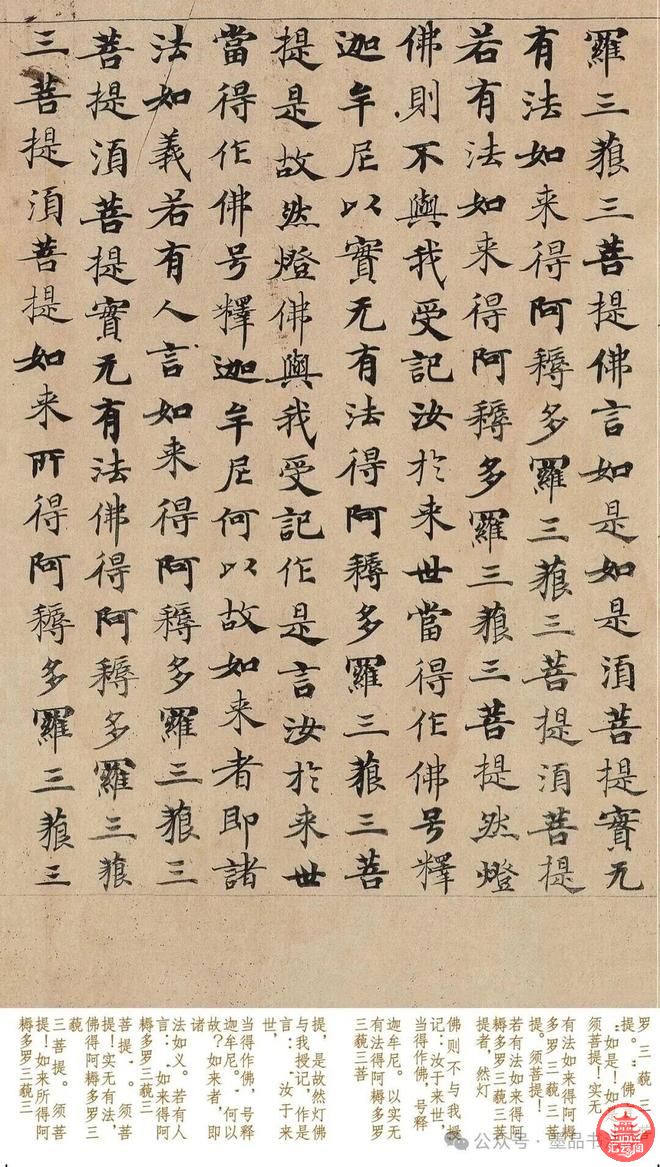 羅三藐三菩提佛言如是如是須菩提實无
有法如来得阿耨多羅三藐三菩提須菩提
若有法如来得阿耨多羅三藐三菩提然燈
佛則不與我受記汝於来世當得作佛号釋
迦牟尼以實无有法得阿耨多羅三藐三菩
提是故然燈佛與我受記作是言汝於来世
當得作佛号釋迦牟尼何以故如来者即諸
法如義若有人言如来得阿耨多羅三藐三
菩提須菩提實无有法佛得阿耨多羅三藐
三菩提須菩提如来所得阿耨多羅三藐三
罗三藐三
提。”佛
“如是!如
须菩提!实无
有法如来得阿耨
多罗三藐三菩
提。须菩提!
若有法如来得阿
耨多罗三藐三菩
提者,然灯
佛则不与我授
记:汝于来世,
当得作佛,号释
迦牟尼。以实无
有法得阿耨多罗
三藐三菩
提,是故然灯佛
与我授记,作是
言:‘汝于来
世,
当得作佛,号释
迦牟尼。’何以
故?如来者,即
诸
法如义。若有人
言:‘如来得阿
耨多罗三藐三
菩提’。须菩
提!实无有法,
佛得阿耨多罗三
藐
三菩提。须菩
提!如来所得阿
耨多罗三藐三
公众号·墨品书
墨品
汇云阁